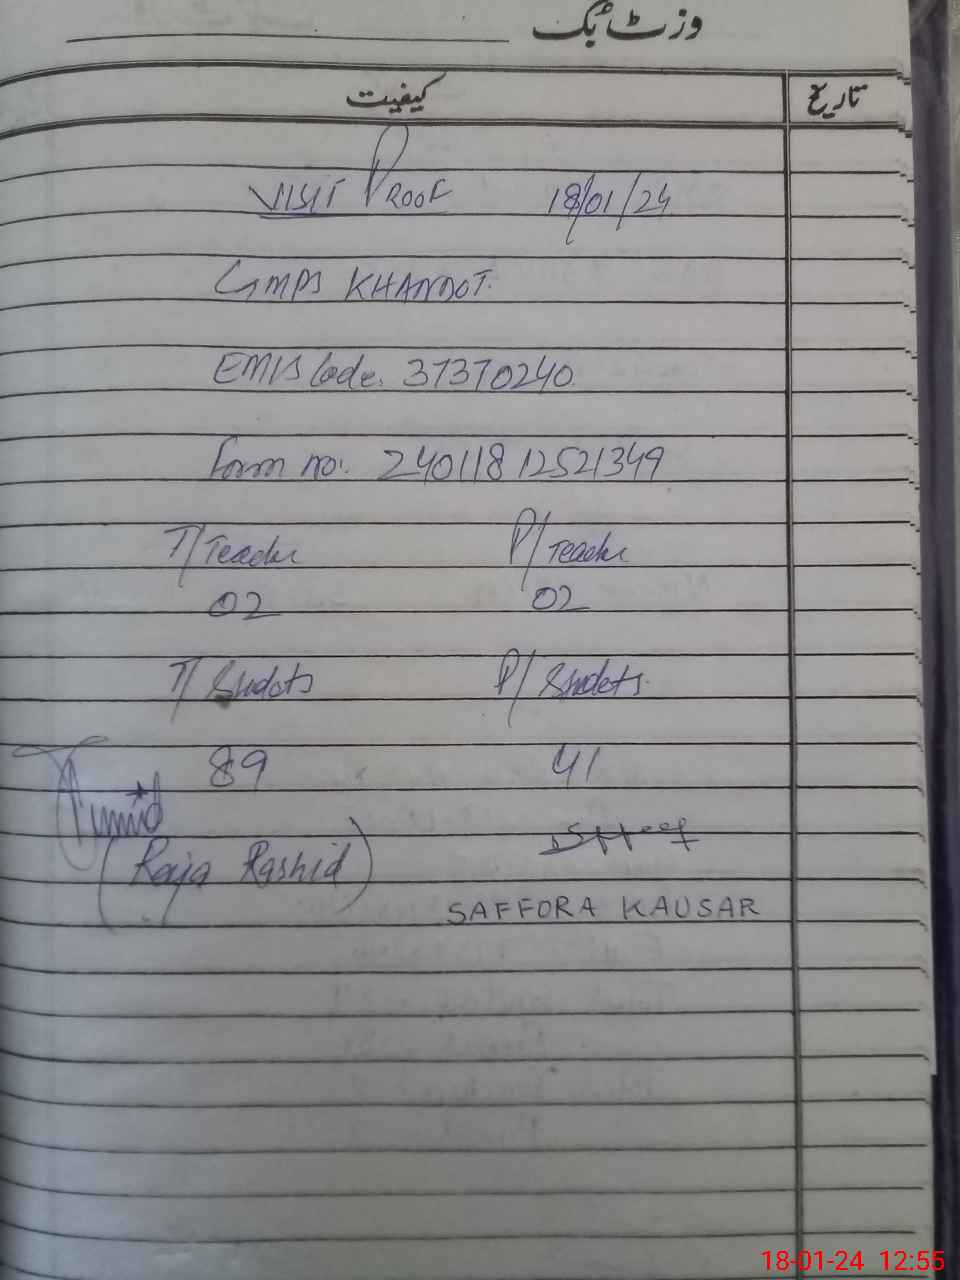 وزٹ بک
کیفیت تاریخ
VISIT PROOF 18/01/24
GMPS KHANDOT.
EMIS Code. 37370240
Form no: 240118 12521349
T/Teacher P/Teacher
02 02
T/Studets P/Studets.
89 41
(Raja Rashid)
SAFFORA KAUSAR
18-01-24 12:55